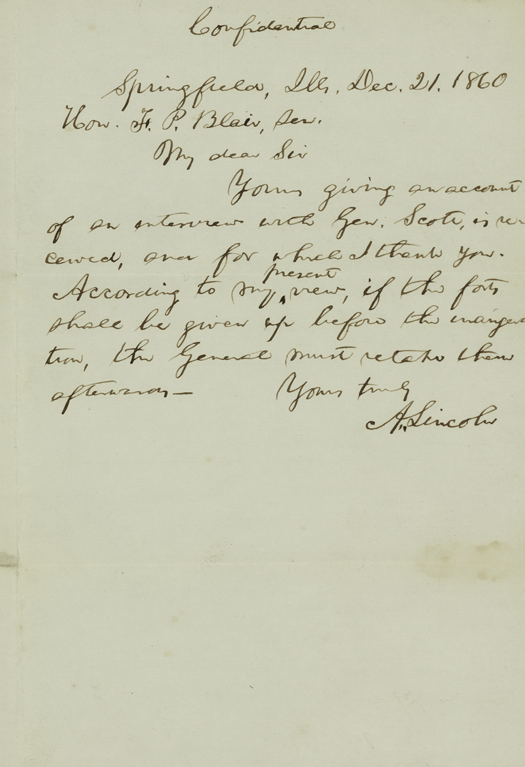 Confidential
Springfield, Ills. Dec. 21. 1860
Hon. F. P. Blair, Sen.
My dear Sir
Yours giving an account
of an interview with Gen. Scott, is re-
ceived, and for which I thank you.
According to my present view, if the forts
shall be given up before the inaugera-
tion, the General must retake them
afterwards—
Yours truly
A. Lincoln